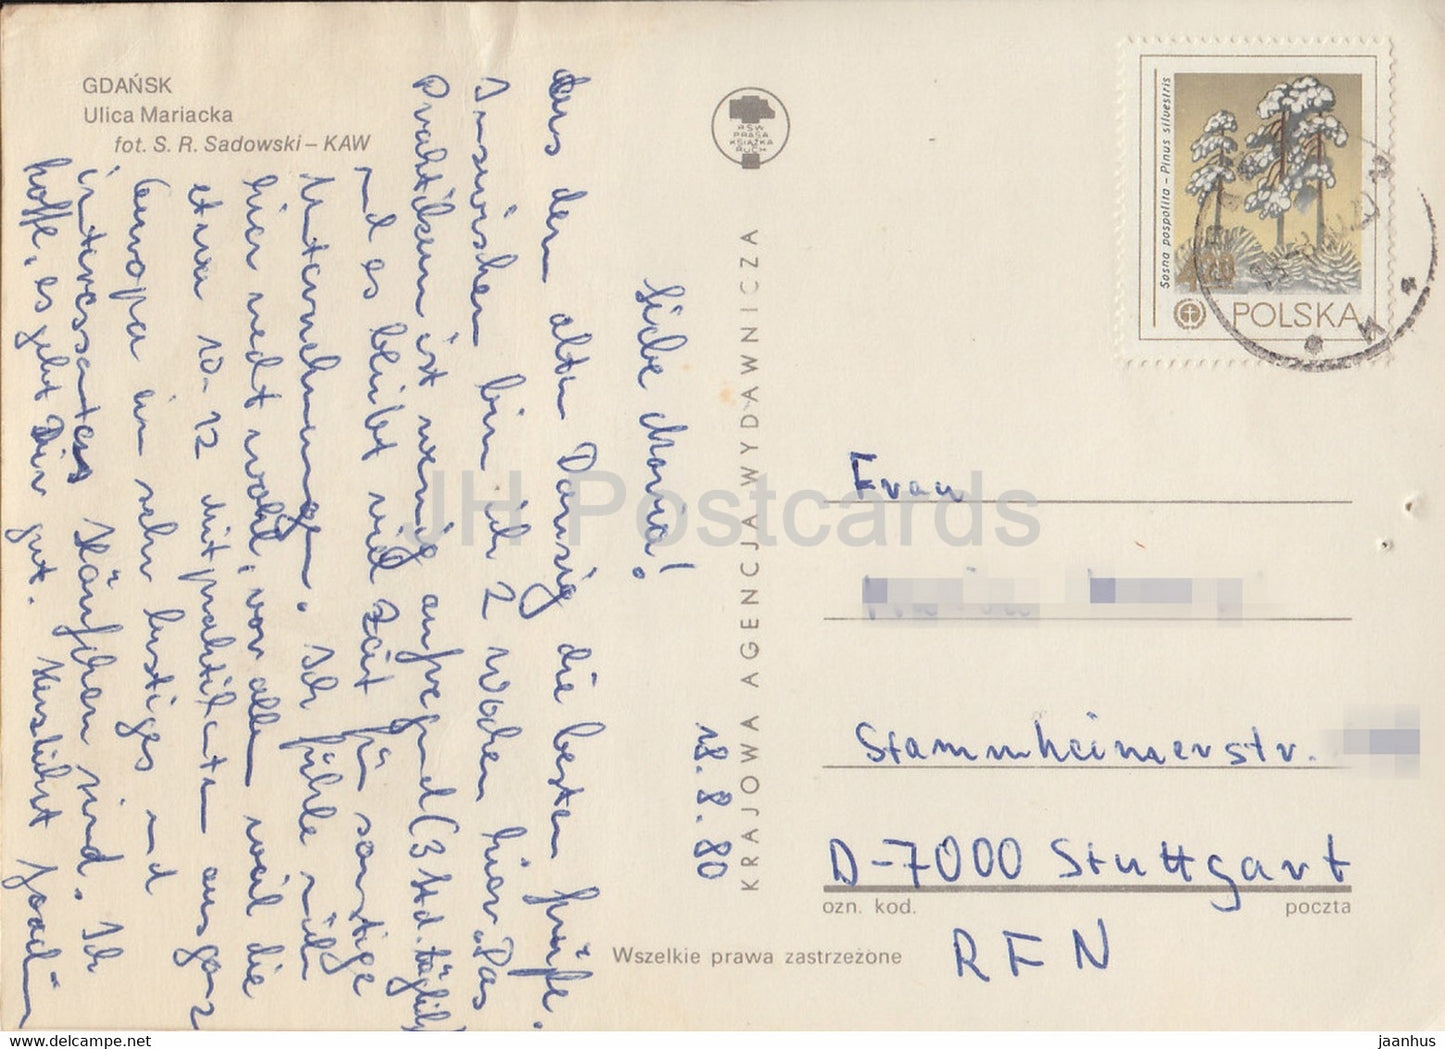 GDAŃSK
Ulica Mariacka
fot. S. R. Sadowski – KAW
RSW
PRASA
KSIĄŻKA
RUCH
KRAJOWA AGENCJA WYDAWNICZA
Wszelkie prawa zastrzeżone
18.8.80
Liebe Maria!
Aus dem alten Danzig die besten Grüße.
Inzwischen bin ich 2 Wochen hier. Das
Praktikum ist wenig aufregend (3 Std. täglich)
und es bleibt viel Zeit für sonstige
Unternehmungen. Ich fühle mich
hier recht wohl, vor allem weil die
etwa 10-12 Mitpraktikanten aus ganz
Europa ein sehr lustiges und
interessantes Häufchen sind. Ich
hoffe, es geht Dir gut. Herzlichst
Sosna pospolita – Pinus silvestris
420
POLSKA
Frau
Stammheimerstr.
D-7000 Stuttgart
ozn. kod. poczta
RFN
JH Postcards
www.delcampe.net
jaanhus